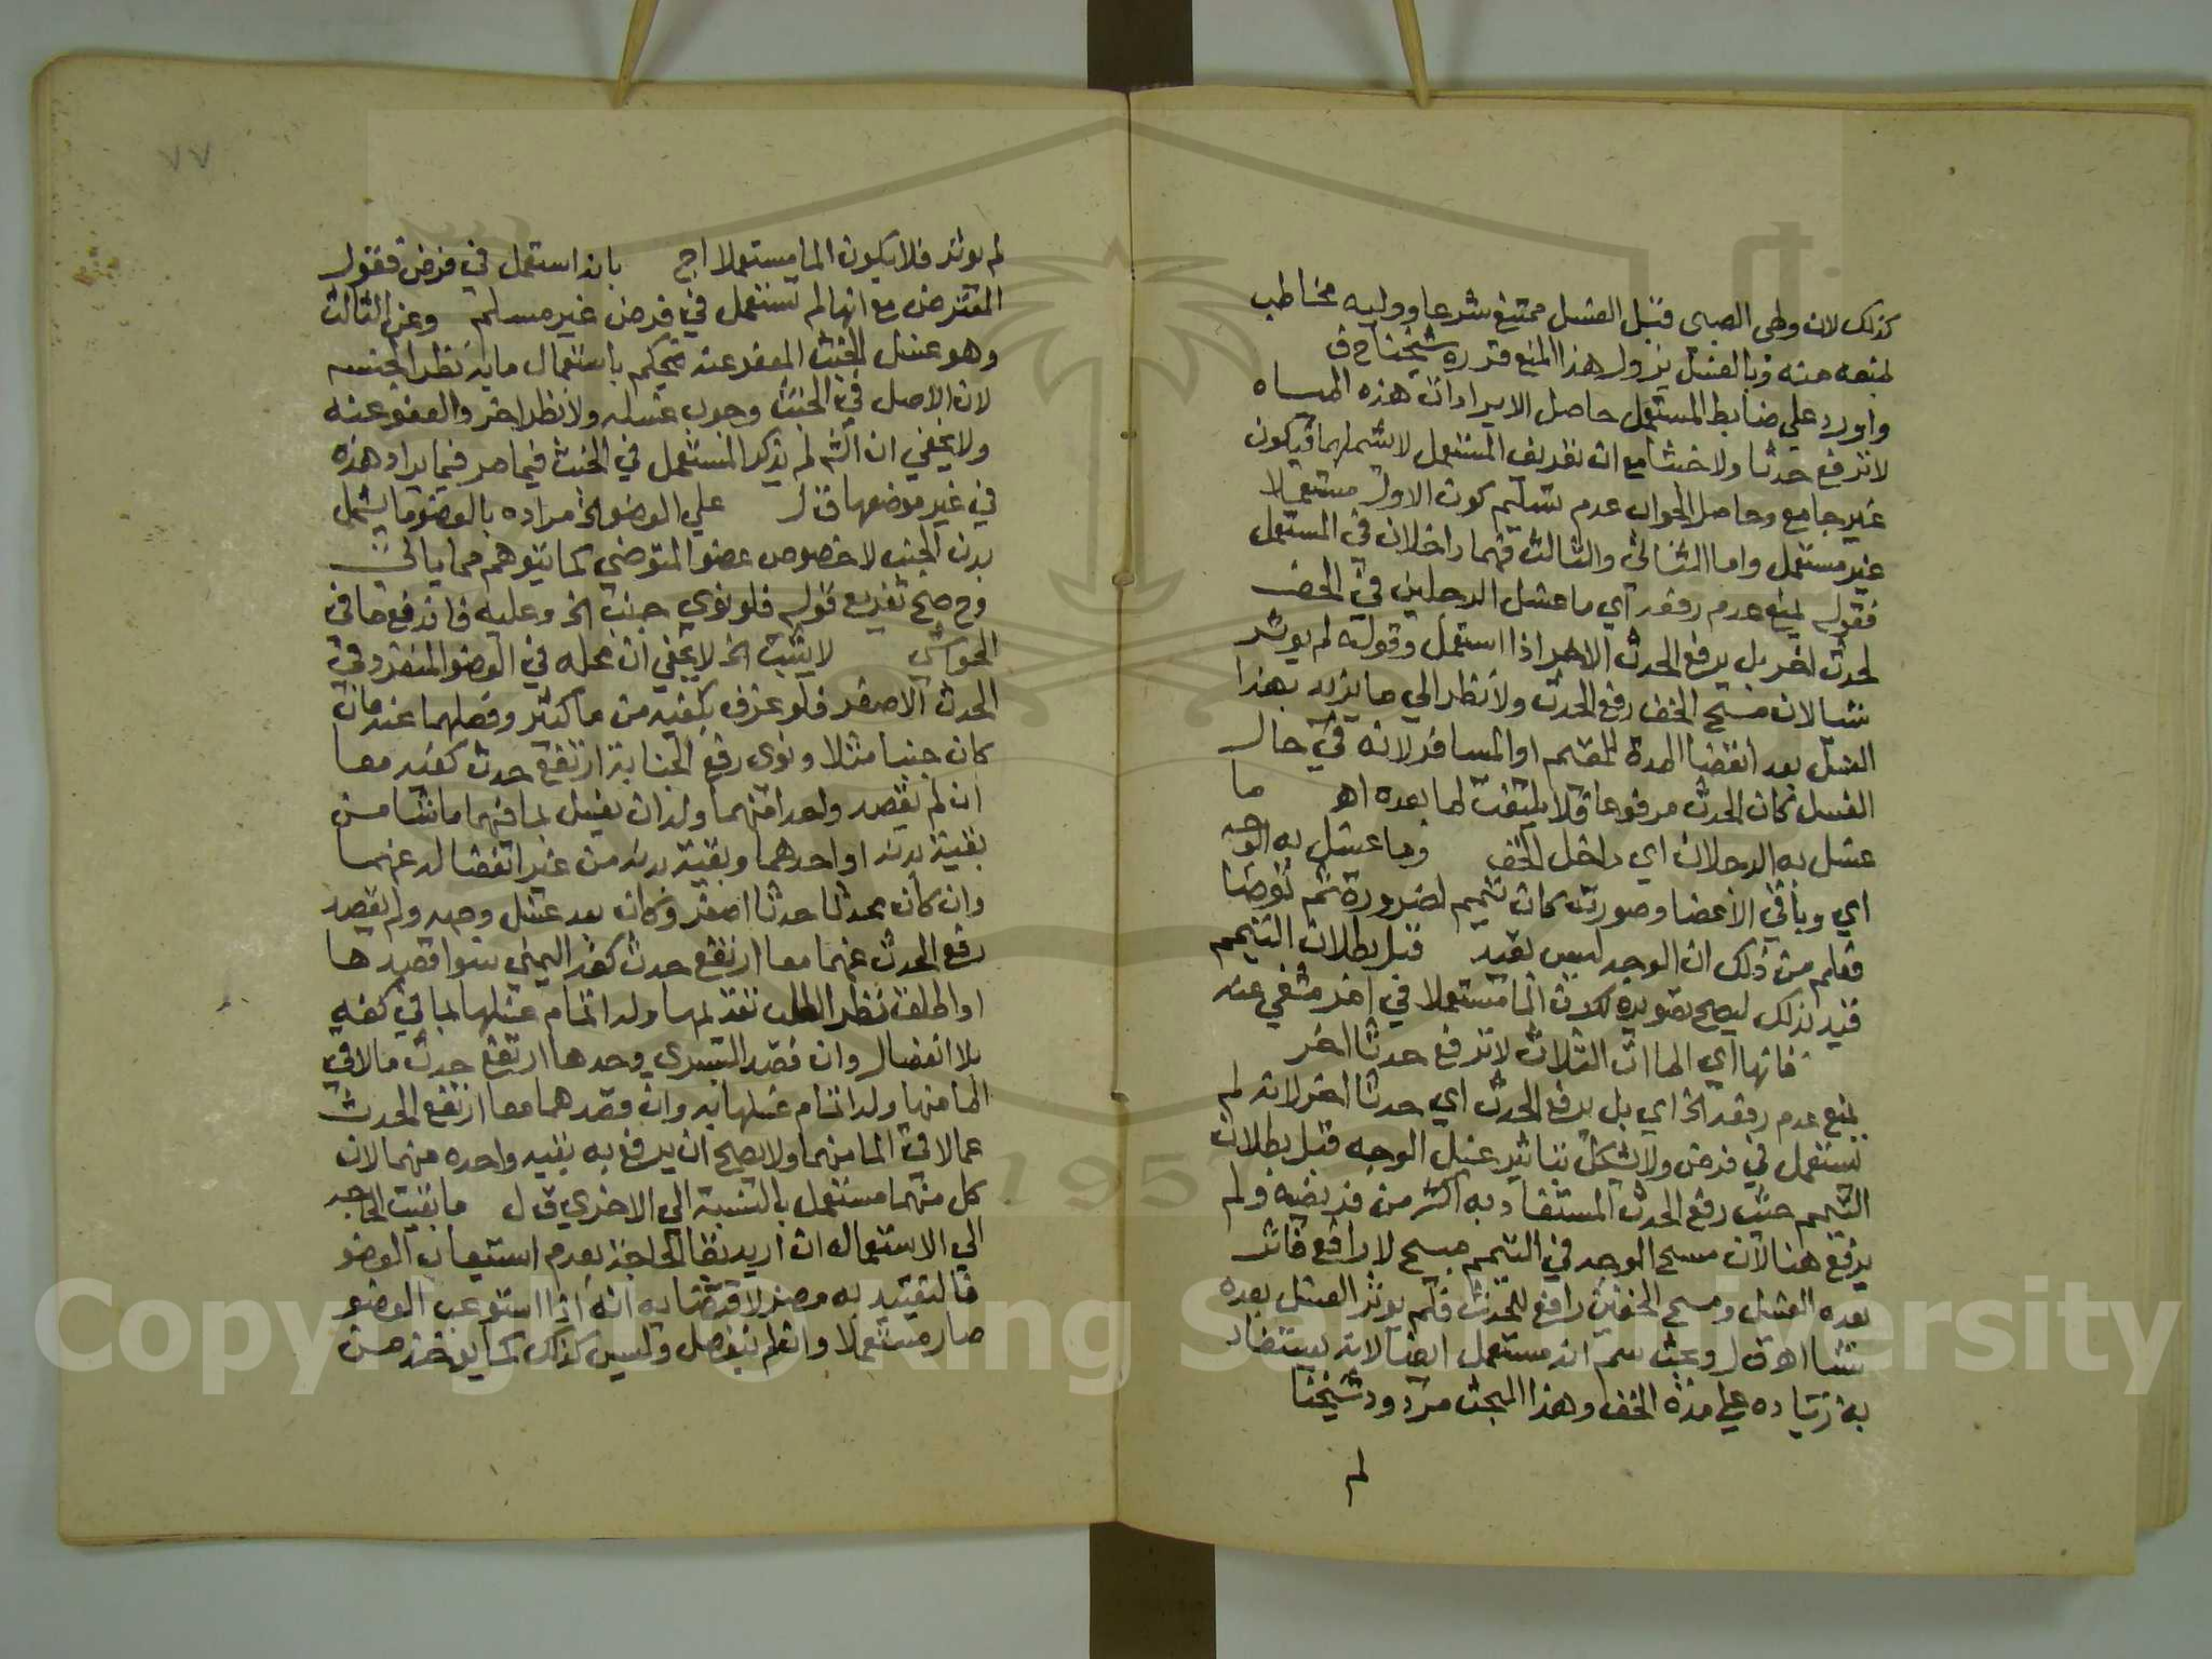 كذلك لان وطى الصبي قبل الغسل ممتنع شرعا ووليه مخاطب
لمنعه منه وبالغسل يزول هذا المنع قرره شيخنا ح ف
واورد علي ضابط المستعمل حاصل الايراد ان هذه المياه
لا ترفع حدثا ولا خبثا مع ان تعريف المستعمل لا يشملها فيكون
غير جامع وحاصل الجواب عدم تسليم كون الاول مستعملا
غير مستعمل واما الثاني والثالث فهما داخلان في المستعمل
فقوله لمنع عدم رفعه اي ما غسل الرجلين في الخف
لحدث اخر بل يرفع الحدث الاخر اذا استعمل وقوله لم يوثر
شيا لان مسح الخف رفع الحدث ولا نظر الي ما يزيد بهذا
الغسل بعد انقضا المدة للمقيم او المسافر لانه في حال
الغسل كان الحدث مرفوعا فلا يلتفت لما بعده اهـ ما
غسل به الرجلان اي داخل الخف وما غسل به الوجه
اي وباقي الاعضا وصورته كان تيمم لضرورة ثم توضا
فعلم من ذلك ان الوجه ليس بقيد قبل بطلان التيمم
قيد بذلك ليصح تصويره لكون الما مستعملا في امر مشفي عنه
فانها اي الماات الثلاث لا ترفع حدثا اخر
بمنع عدم رفعه الخ اي بل يرفع الحدث اي حدثا اخر لانه لم
يستعمل في فرض ولا يشكل بتاثير غسل الوجه قبل بطلان
التيمم حيث رفع الحدث المستفاد به اكثر من فريضه ولم
يرفع هنا لان مسح الوجه في التيمم مبيح لا رافع فاثر
بعده الغسل ومسح الخفين رافع للحدث فلم يوثر الغسل بعده
شيا اهـ ق ل وبحث سم انه مستعمل ايضا لانه يستفاد
به زياده علي مدة الخف وهذا المبحث مردود شيخنا
لم
٧٧
لم يوثر فلا يكون الما مستعملا اج بانه استعمل في فرض فقول
المعترض مع انها لم تستعمل في فرض غير مسلم وعن الثالث
وهو غسل الخبث المعفو عنه يحكم باستعمال مايه نظر الجنسه
لان الاصل في الخبث وجوب غسله ولا نظر اخر والعفو عنه
ولا يخفي ان الش لم يذكر المستعمل في الخبث فيما مر فيما يراد هذه
في غير موضعها ق ل علي العضو الخ مراده بالعضو ما يشمل
بدن الجنب لا خصوص عضو المتوضي كما يتوهم مما ياتي
وح صح تفريع قوله فلو نوي جنب الخ وعليه فاندفع ما في
الحواشي لا يثبت الخ لا يخفي ان محله في العضو المنفرد وفي
الحدث الاصغر فلو غرف بكفيه من ما كثير وفصلهما عنه فان
كان جنبا مثلا ونوى رفع الجنابة ارتفع حدث كفيه معا
ان لم يقصد واحدا منهما وله ان يغسل بما فيهما ما شا من
بقية بدنه او احدهما وبقية بدنه من غير انفصاله عنهما
وان كان محدثا حدثا اصغر وكان بعد غسل وجهه ولم يقصد
رفع الحدث عنهما معا ارتفع حدث كفه اليمني سوا قصدها
او اطلق نظر الطلب تقديمها وله اتمام غسلها بما في كفه
بلا انفصال وان قصد اليسري وحدها ارتفع حدث ما لاقي
الما منها وله اتمام غسلها به وان قصدهما معا ارتفع الحدث
عما لاقي الما منهما ولا يصح ان يرفع به بقيه واحده منهما لان
كل منهما مستعمل بالنسبة الي الاخري ق ل ما بقيت الحاجه
الي الاستعمال ان اريد بقا الحاجة بعدم استيعاب العضو
فالتقييد به مضر لاقتضايه انه اذا استوعب العضو
صار مستعملا وان لم ينفصل وليس كذلك كما يوخذ من